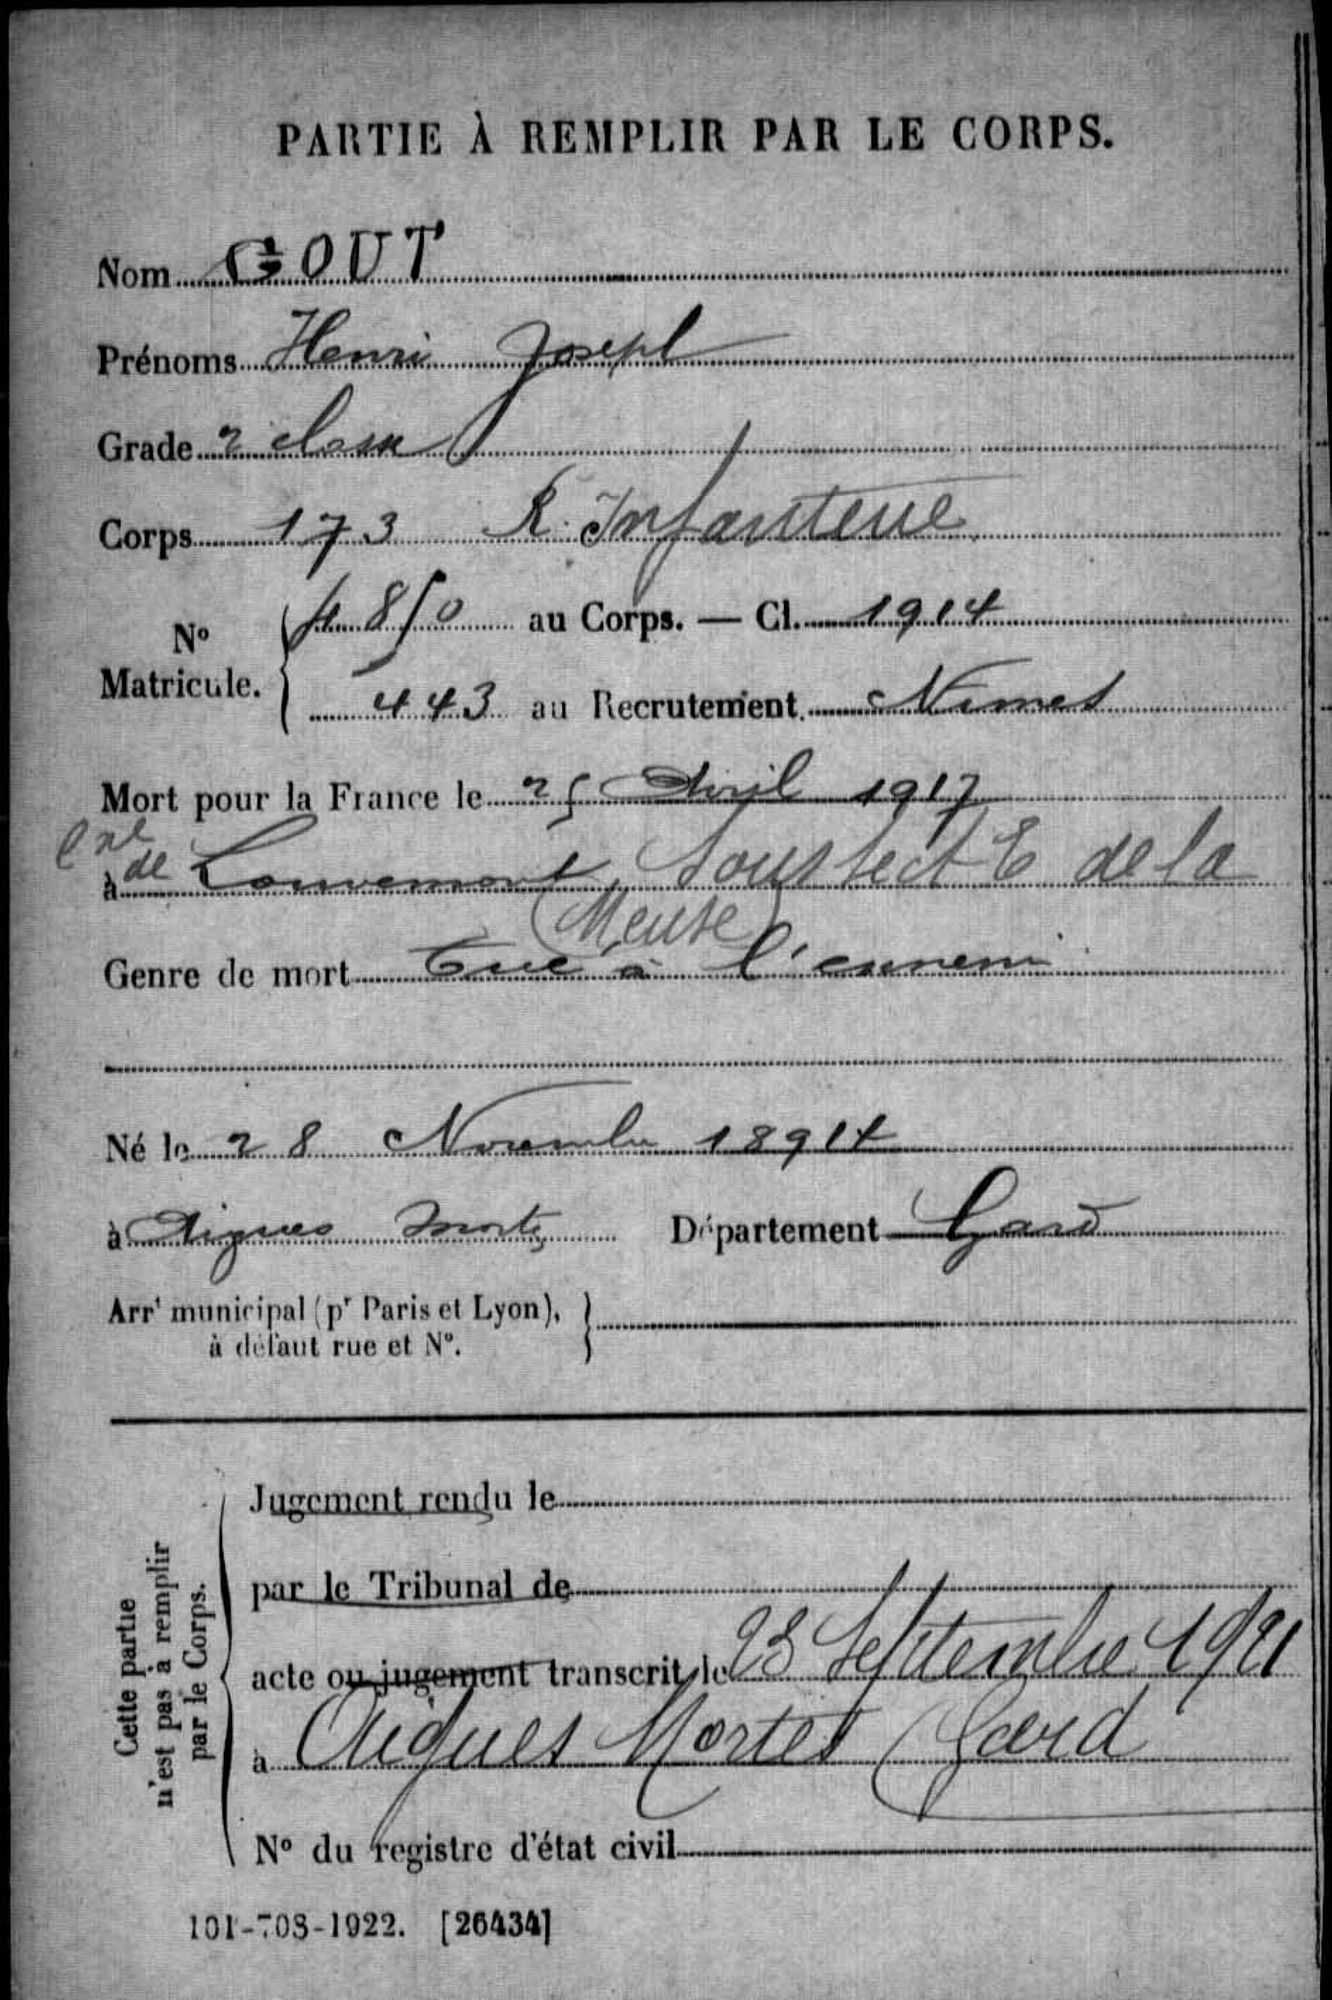 PARTIE À REMPLIR PAR LE CORPS.
Nom GOUT
Prénoms Henri Joseph
Grade 2 classe
Corps 173 R. Infanterie
N° Matricule. 4850 au Corps. — Cl. 1914
443 au Recrutement. Nimes
Mort pour la France le 25 Avril 1917
à de Louvemont, Sous sect E de la
(Meuse)
Genre de mort Tué à l'ennemi
Né le 28 Novembre 1894
à Aigues Mortes Département Gard
Arrt municipal (pr Paris et Lyon),
à défaut rue et N°.
Cette partie
n'est pas à remplir
par le Corps.
Jugement rendu le
par le Tribunal de
acte ou jugement transcrit le 23 Septembre 1921
à Aigues Mortes Gard
N° du registre d'état civil
101-708-1922. [26434]